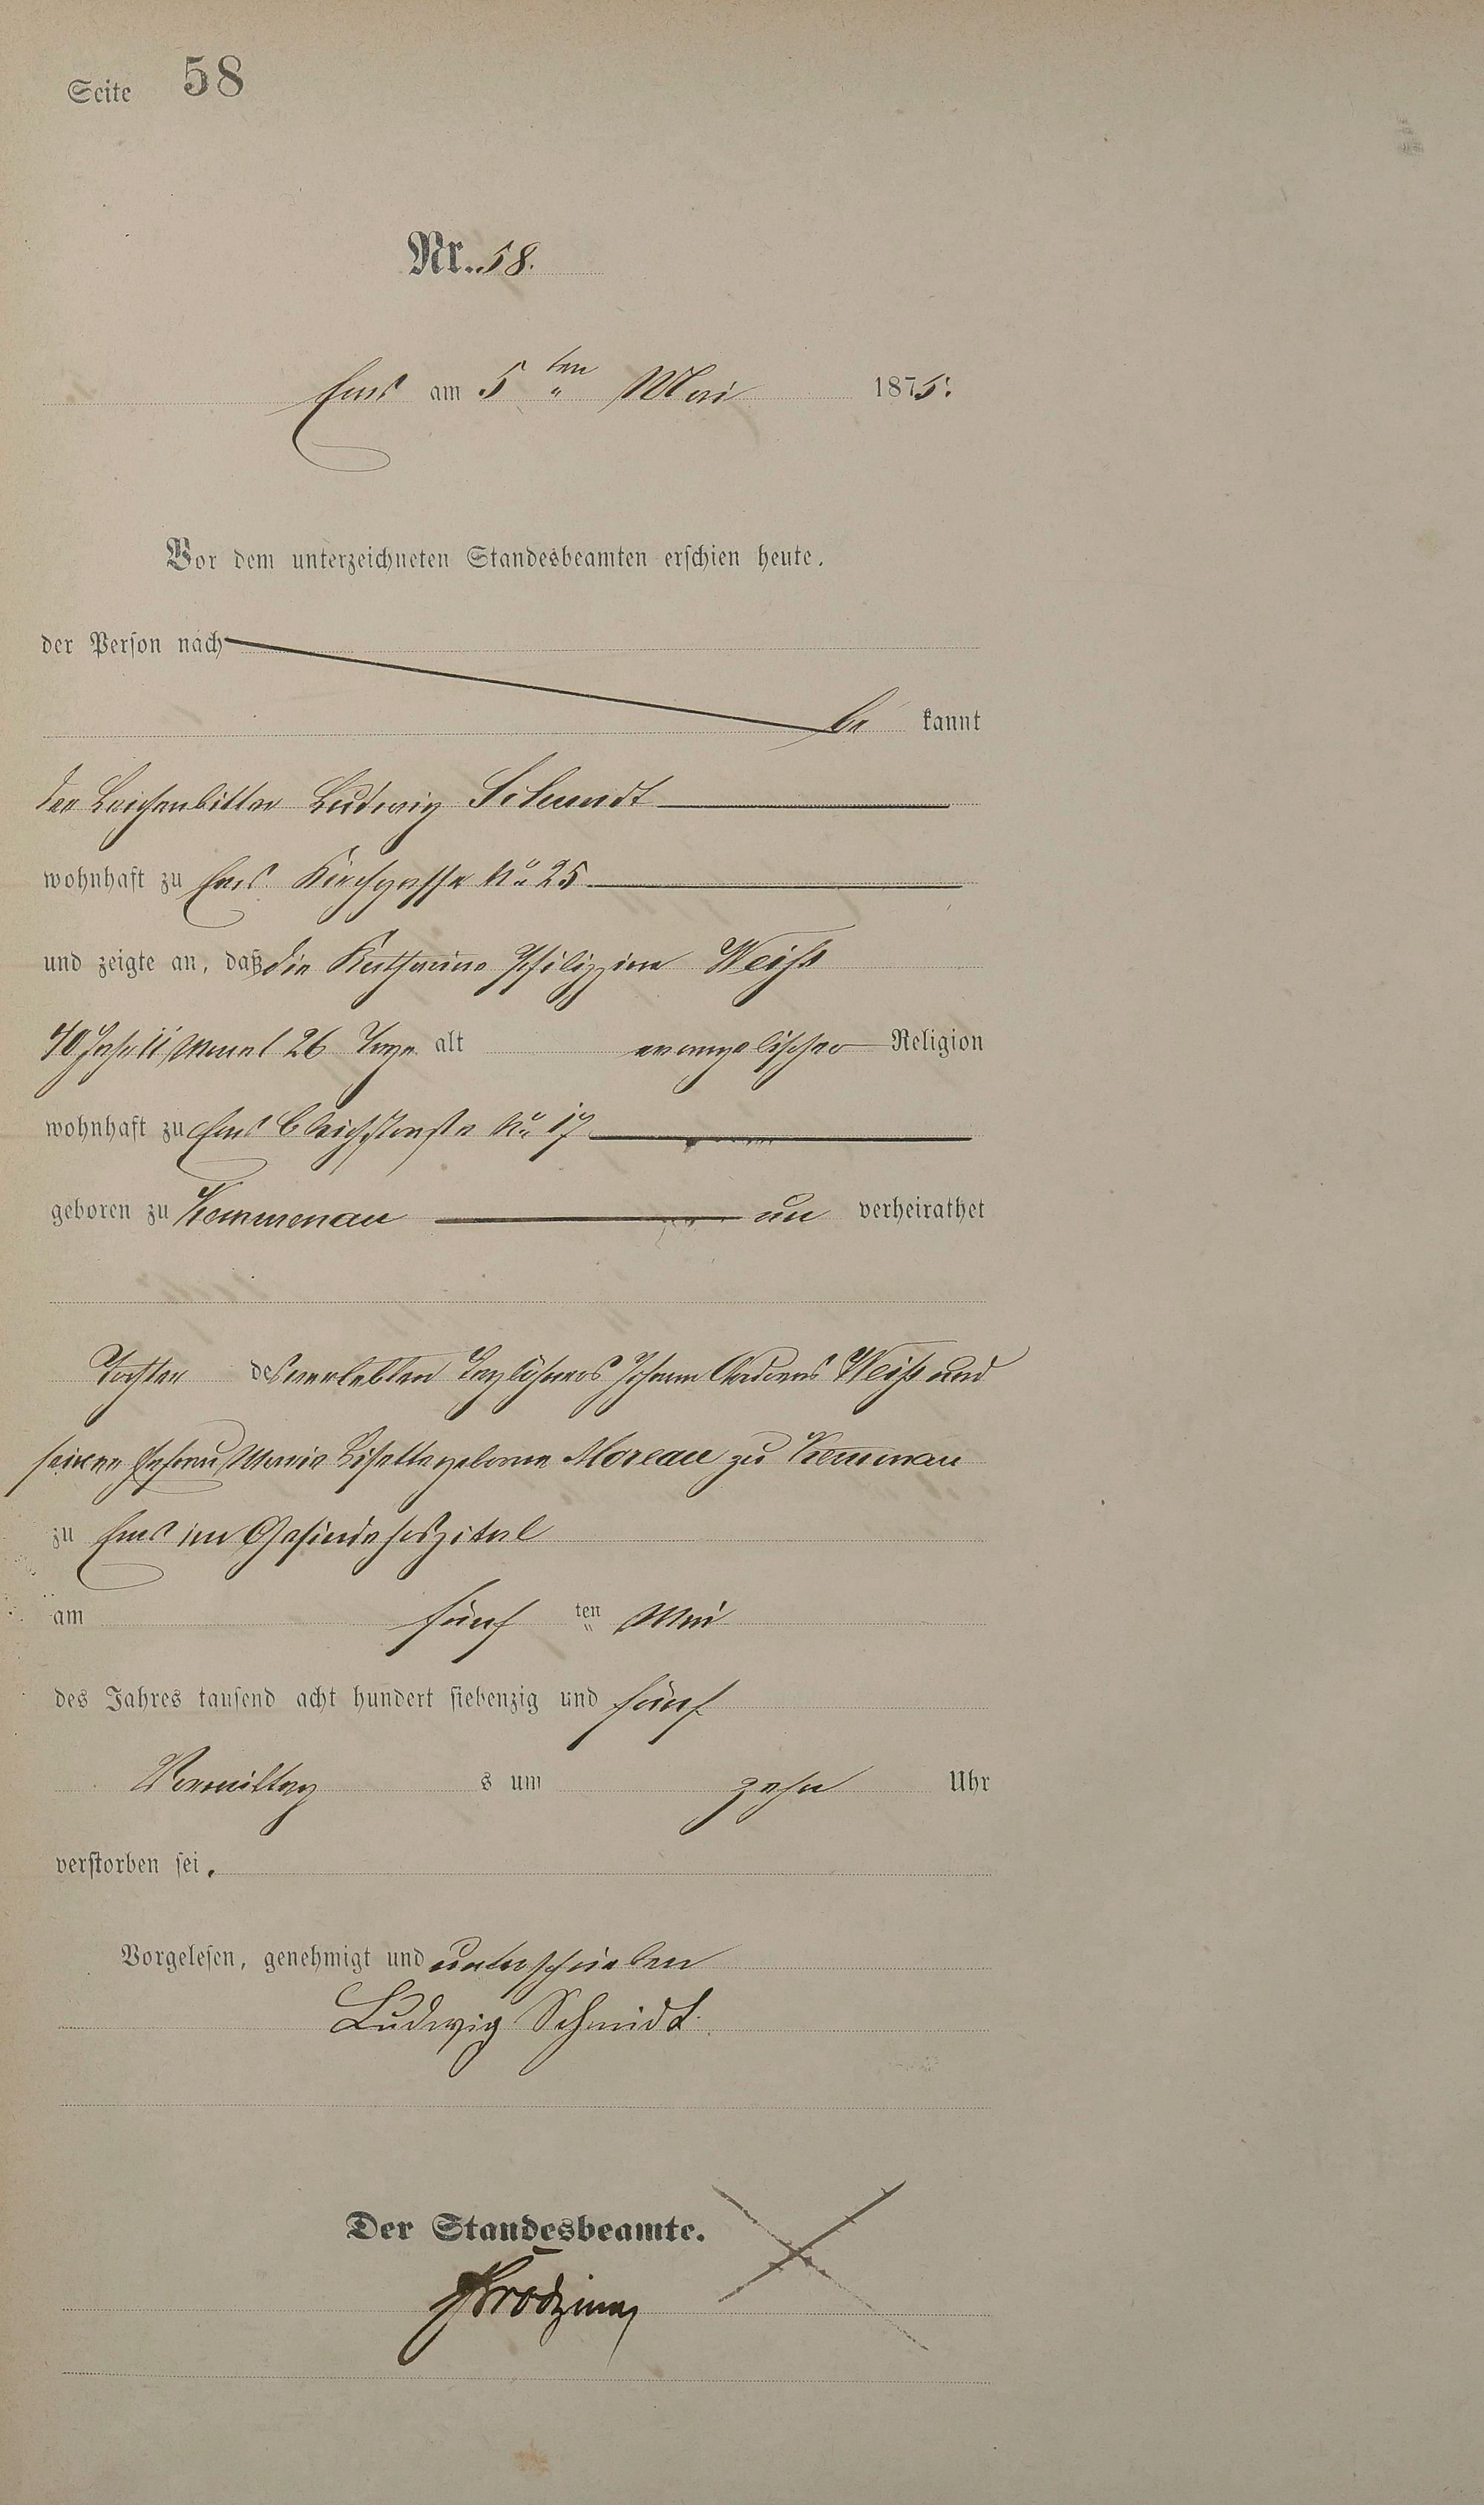 Seite 58
Nr. 58.
Ems am 5ten Mai 1875.
Vor dem unterzeichneten Standesbeamten erschien heute,
der Person nach
be kannt
der Leichenbitter Ludwig Schmidt
wohnhaft zu Ems Kirchgasse No 25
und zeigte an, daß die Katharine Philippine Weiß
40 Jahr 11 Monat 26 Tage alt evangelischer Religion
wohnhaft zu Ems Bleichstraße No 17
geboren zu Kemmenau un verheirathet
Tochter des verlebten Taglöhners Johann Andreas Weiß und
seiner Ehefrau Marie Lisette geborne Moreau zu Kemmenau
zu Ems im Gesindehospital
am fünf ten Mai
des Jahres tausend acht hundert siebenzig und fünf
Vormittag s um zehn Uhr
verstorben sei.
Vorgelesen, genehmigt und unterschrieben
Ludwig Schmidt.
Der Standesbeamte.